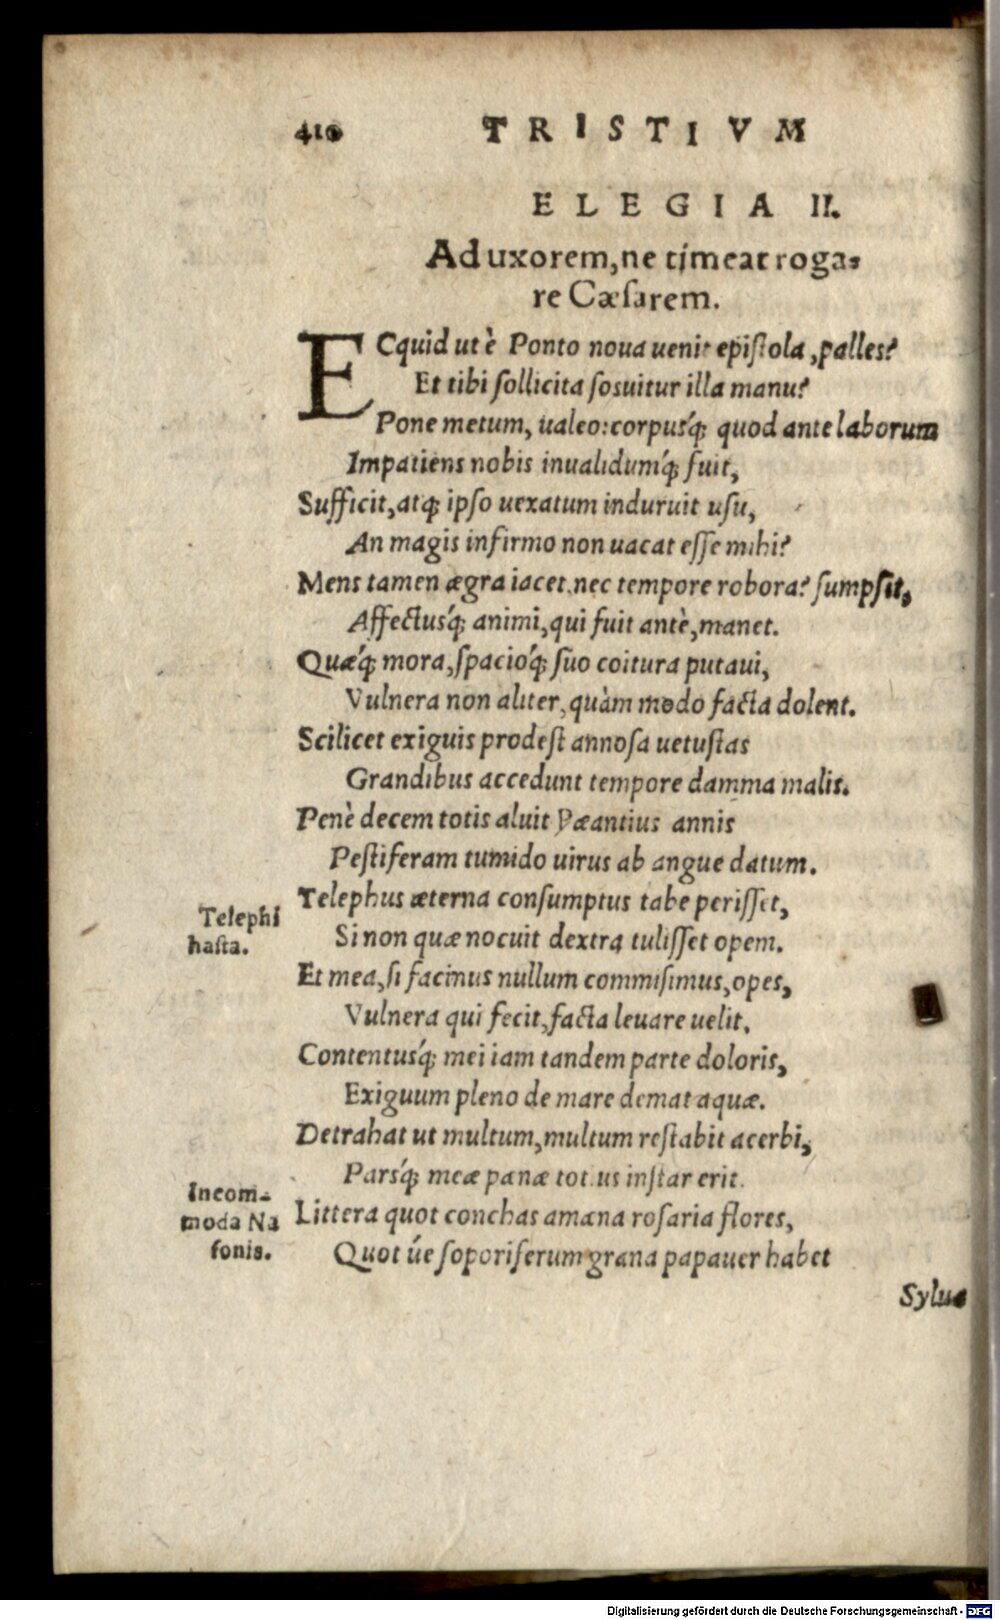 410 TRISTIVM
ELEGIA II.
Ad uxorem, ne timeat roga-
re Cæsarem.
ECquid ut è Ponto noua uenit epistola, palles?
Et tibi sollicita sosuitur illa manu?
Pone metum, ualeo: corpusq́; quod ante laborum
Impatiens nobis inualidumq́; fuit,
Sufficit, atq; ipso uexatum induruit usu,
An magis infirmo non uacat esse mihi?
Mens tamen ægra iacet, nec tempore robora? sumpsit,
Affectusq́; animi, qui fuit antè, manet.
Quæq́; mora, spacioq́; suo coitura putaui,
Vulnera non aliter, quàm modo facta dolent.
Scilicet exiguis prodest annosa uetustas
Grandibus accedunt tempore damma malis.
Penè decem totis aluit Pæantius annis
Pestiferam tumido uirus ab angue datum.
Telephus æterna consumptus tabe perisset,
Si non quæ nocuit dextra tulisset opem.
Telephi
hasta.
Et mea, si facinus nullum commisimus, opes,
Vulnera qui fecit, facta leuare uelit.
Contentusq́; mei iam tandem parte doloris,
Exiguum pleno de mare demat aquæ.
Detrahat ut multum, multum restabit acerbi,
Parsq́; meæ pænæ totius instar erit.
Littera quot conchas amæna rosaria flores,
Quot úe soporiferum grana papauer habet
Incom-
moda Na
sonis.
Syluæ
Digitalisierung gefördert durch die Deutsche Forschungsgemeinschaft - DFG